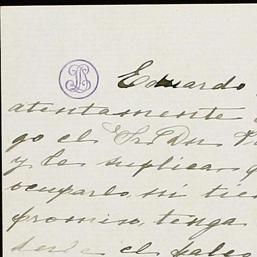 Eduardo
atentamente
go el Sr Dn
y le suplica q
ocuparlo, si tie
promiso, tenga
de el palco